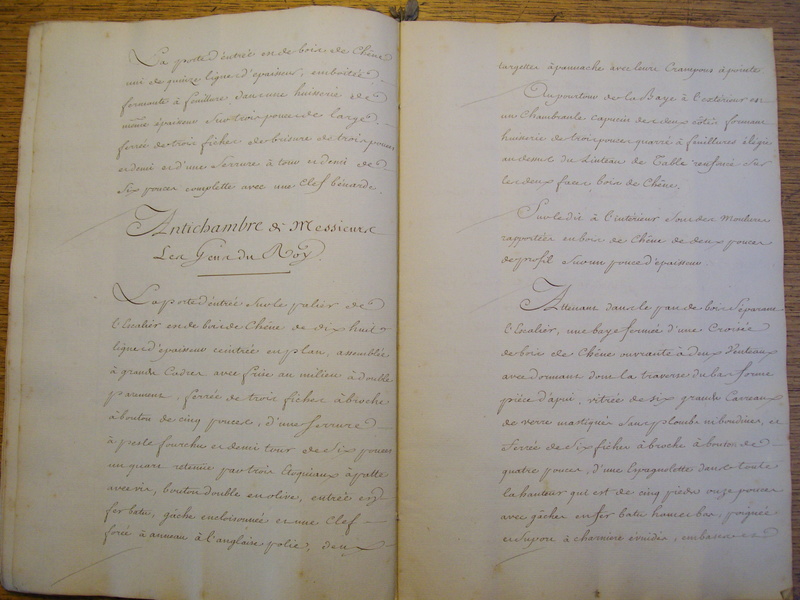 La porte d'entrée en de bois de Chêne
uni de quinze lignes d'epaisseur, emboitée
formante à feuillure dans une huisserie de
même épaisseur sur trois pouces de large
ferrée de trois fiches de brisure de trois pouces
et demi et d'une serrure à tour et demi de
six pouces complette avec une Clef bénarde.
Antichambre de Messieurs
Les Gens du Roy.
La porte d'entrée sur le palier de
l'Escalier en de bois de Chêne de dix huit
lignes d'epaisseur ceintrée en plan, assemblée
à grands Cadres avec frise au milieu à double
parement, ferrée de trois fiches à broche
à bouton de cinq pouces, d'une serrure
à pesle fourchu et demi tour de six pouces
un quart retenue par trois Etoquiaux à patte
avec vis, bouton double en olive, entrée en
fer batu, gâche encloisonnée et une Clef
forée à anneau à l'anglaise polie, deux
targettes à pannache avec leurs Crampons à pointe.
Au pourtour de la Baye à l'extérieur est
un Chambranle capucin des deux côtés formant
huisserie de trois pouces quarré à feuillures élégie
au dessus du Linteau de Table renfoncé sur
les deux faces, bois de Chêne.
Sur le dit à l'intérieur sont des Moulures
rapportées en bois de Chêne de deux pouces
de profil sur un pouce d'épaisseur.
Attenant dans le pan de bois séparant
l'Escalier, une baye fermée d'une Croisée
de bois de Chêne ouvrante à deux Venteaux
avec dormant dont la traverse du bas forme
pièce d'apui, vitrée de six grands Carreaux
de verre mastiqué sans plombs ni boudines, et
ferrée de six fiches à broche à bouton de
quatre pouces, d'une Espagnolette dans toute
la hauteur qui est de cinq pieds onze pouces
avec gâches en fer batu haut et bas, poignée
et suport à charnière évuidés, embasses et